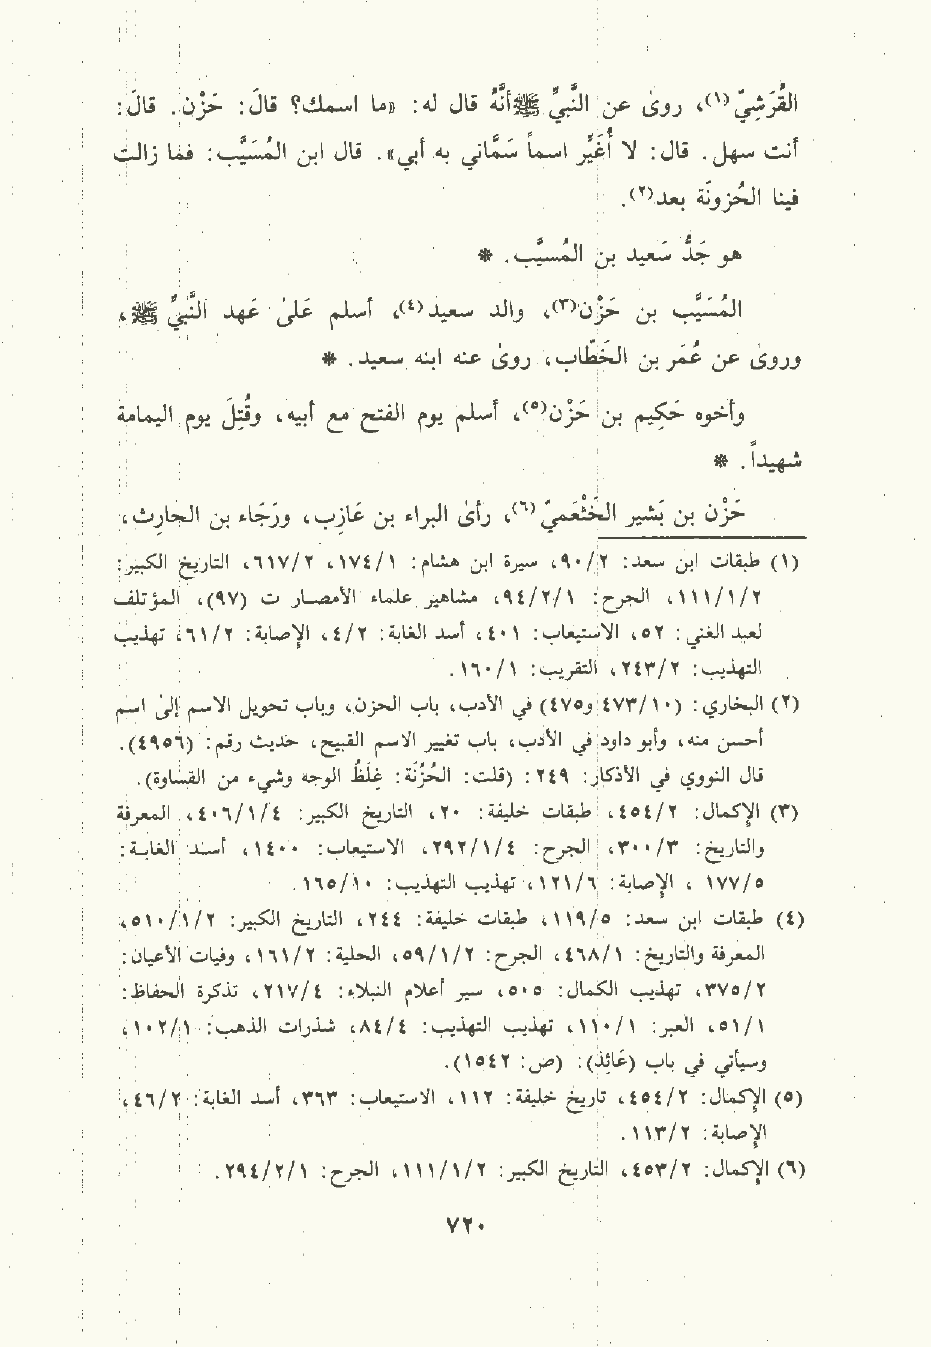 القُرَشِيّ(١)، روىٰ عن النَّبيِّ ﷺ أنَّهُ قال له: «ما اسمك؟ قالَ: حَزْن. قالَ:
أنت سهل. قال: لا أُغَيِّر اسماً سَمَّاني به أبي». قال ابن المُسَيَّب: فما زالت
فينا الحُزونَة بعد(٢).
هو جَدُّ سَعيد بن المُسيَّب. *
المُسَيَّب بن حَزْن(٣)، والد سعيد(٤)، أسلم عَلىٰ عَهد النَّبيِّ ﷺ،
وروىٰ عن عُمَر بن الخَطَّاب، روىٰ عنه ابنه سعيد. *
وأخوه حَكِيم بن حَزْن(٥)، أسلم يوم الفتح مع أبيه، وقُتِلَ يوم اليمامة
شهيداً. *
حَزْن بن بَشير الخَثْعَميّ(٦)، رأىٰ البراء بن عَازِب، ورَجَاء بن الحارِث،
(١) طبقات ابن سعد: ٩٠/٢، سيرة ابن هشام: ١٧٤/١، ٦١٧/٢، التاريخ الكبير:
١١١/١/٢، الجرح: ٩٤/٢/١، مشاهير علماء الأمصار ت (٩٧)، المؤتلف
لعبد الغني: ٥٢، الاستيعاب: ٤٠١، أسد الغابة: ٤/٢، الإصابة: ٦١/٢، تهذيب
التهذيب: ٢٤٣/٢، التقريب: ١٦٠/١.
(٢) البخاري: (٤٧٣/١٠ و٤٧٥) في الأدب، باب الحزن، وباب تحويل الاسم إلىٰ اسم
أحسن منه، وأبو داود في الأدب، باب تغيير الاسم القبيح، حديث رقم: (٤٩٥٦).
قال النووي في الأذكار: ٢٤٩: (قلت: الحُزُنَة: غِلَظُ الوجه وشيء من القساوة).
(٣) الإكمال: ٤٥٤/٢، طبقات خليفة: ٢٠، التاريخ الكبير: ٤٠٦/١/٤، المعرفة
والتاريخ: ٣٠٠/٣، الجرح: ٢٩٢/١/٤، الاستيعاب: ١٤٠٠، أسد الغابة:
١٧٧/٥ ، الإصابة: ١٢١/٦، تهذيب التهذيب: ١٦٥/١٠.
(٤) طبقات ابن سعد: ١١٩/٥، طبقات خليفة: ٢٤٤، التاريخ الكبير: ٥١٠/١/٢،
المعرفة والتاريخ: ٤٦٨/١، الجرح: ٥٩/١/٢، الحلية: ١٦١/٢، وفيات الأعيان:
٣٧٥/٢، تهذيب الكمال: ٥٠٥، سير أعلام النبلاء: ٢١٧/٤، تذكرة الحفاظ:
٥١/١، العبر: ١١٠/١، تهذيب التهذيب: ٨٤/٤، شذرات الذهب: ١٠٢/١،
وسيأتي في باب (عَائِذ): (ص: ١٥٤٢).
(٥) الإكمال: ٤٥٤/٢، تاريخ خليفة: ١١٢، الاستيعاب: ٣٦٣، أسد الغابة: ٤٦/٢،
الإصابة: ١١٣/٢.
(٦) الإكمال: ٤٥٣/٢، التاريخ الكبير: ١١١/١/٢، الجرح: ٢٩٤/٢/١.
٧٢٠